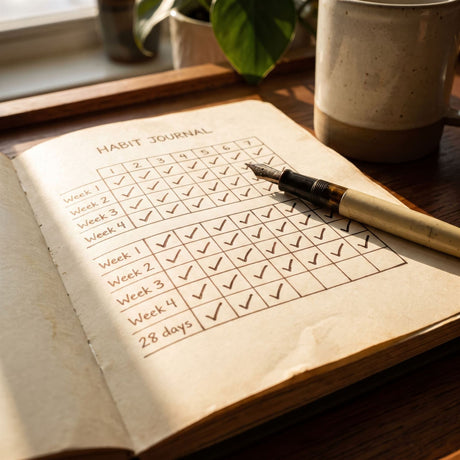 HABIT JOURNAL
1 2 3 4 5 6 7
Week 1
Week 2
Week 3
Week 4
Week 1
Week 2
Week 3
Week 4
28 days